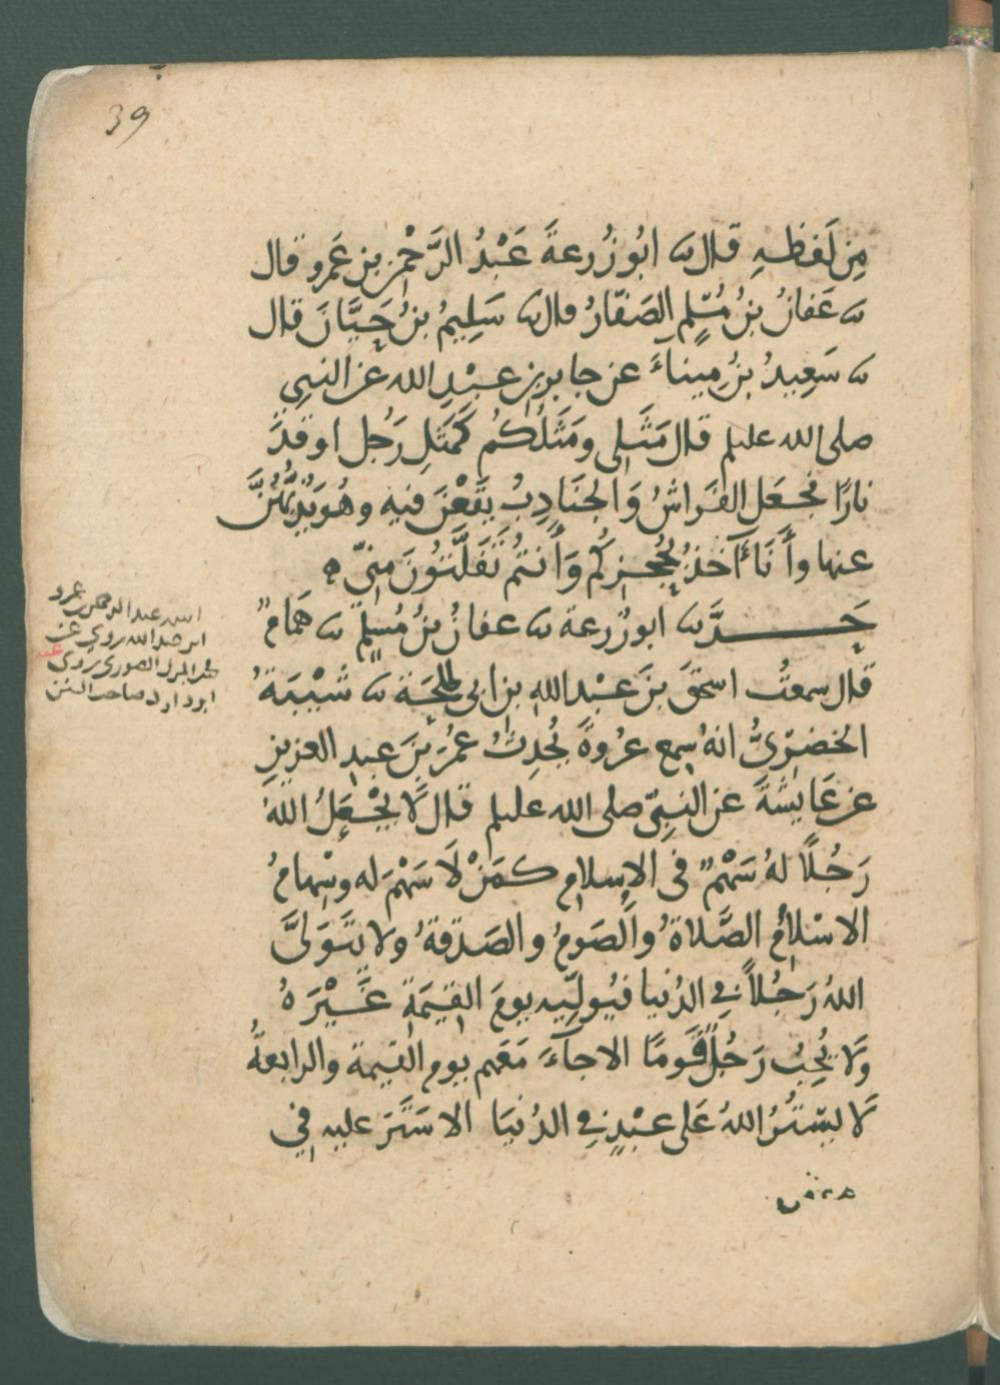 39
مِن لَفظِهِ قال نا ابُو زُرعةَ عَبْدُ الرَّحْمٰن بن عَمرو قال
نا عَفانُ بنُ مُسْلِمٍ الصَفّارُ قال نا سَلِيمُ بنُ حَيَّانَ قال
نا سَعِيدُ بنُ مِيناءَ عن جابرِ بنِ عبْدِ الله عن النبِي
صلى الله عليلم قال مَثَلِى ومَثَلُكُم كَمَثَلِ رَجُلٍ اوقدَ
نارًا فجعَل الفَراشُ وَالجَنَادِبُ يَقَعْنَ فيه وهُو يَذُبُّهُنَّ
عنها وأَنَا آخذٌ بحُجَزِكُم وَأَنتُم تَفَلَّتُونَ مِنّي ه
حَدَّثنا ابو زُرعة نا عفانُ بنُ مُسْلِمٍ نا هَمامٌ
قال سمعتُ اسحقَ بنَ عبْد اللهِ بن ابى طلحَة نا شَيْبَةُ
الخضرِىُّ انهُ سمِع عُروةَ يُحدِثُ عمُرَ بنَ عبدِ العزيزِ
عن عَايشةَ عن النبِيّ صلى الله عليلم قال لَا يجْعَلُ اللهُ
رَجُلًا لهُ سَهْمٌ فى الاسلامِ كمَنْ لَا سَهْمَ له وسِهامُ
الاسْلامِ الصَّلاةُ والصَومُ والصَدقةُ ولا يتَوَلىَّ
اللهُ رَجُلاً فِي الدُنيا فيُولِّيه يومَ القِيمَةِ غَيْرَهُ
وَلا يُحِبُ رَجُلٌ قَومًا الا جآءَ مَعَهم يوم القيمة والرابعةُ
لَا يستُرُ اللهُ عَلى عبْدٍ فِي الدُنيَا الا سَتَرَ عليه في
اسمه عبد الرحمن بن عمرو
ابن عبد الله روى عن
محمد بن المبرك الصورى روى عنه
ابو داود صاحب السنن